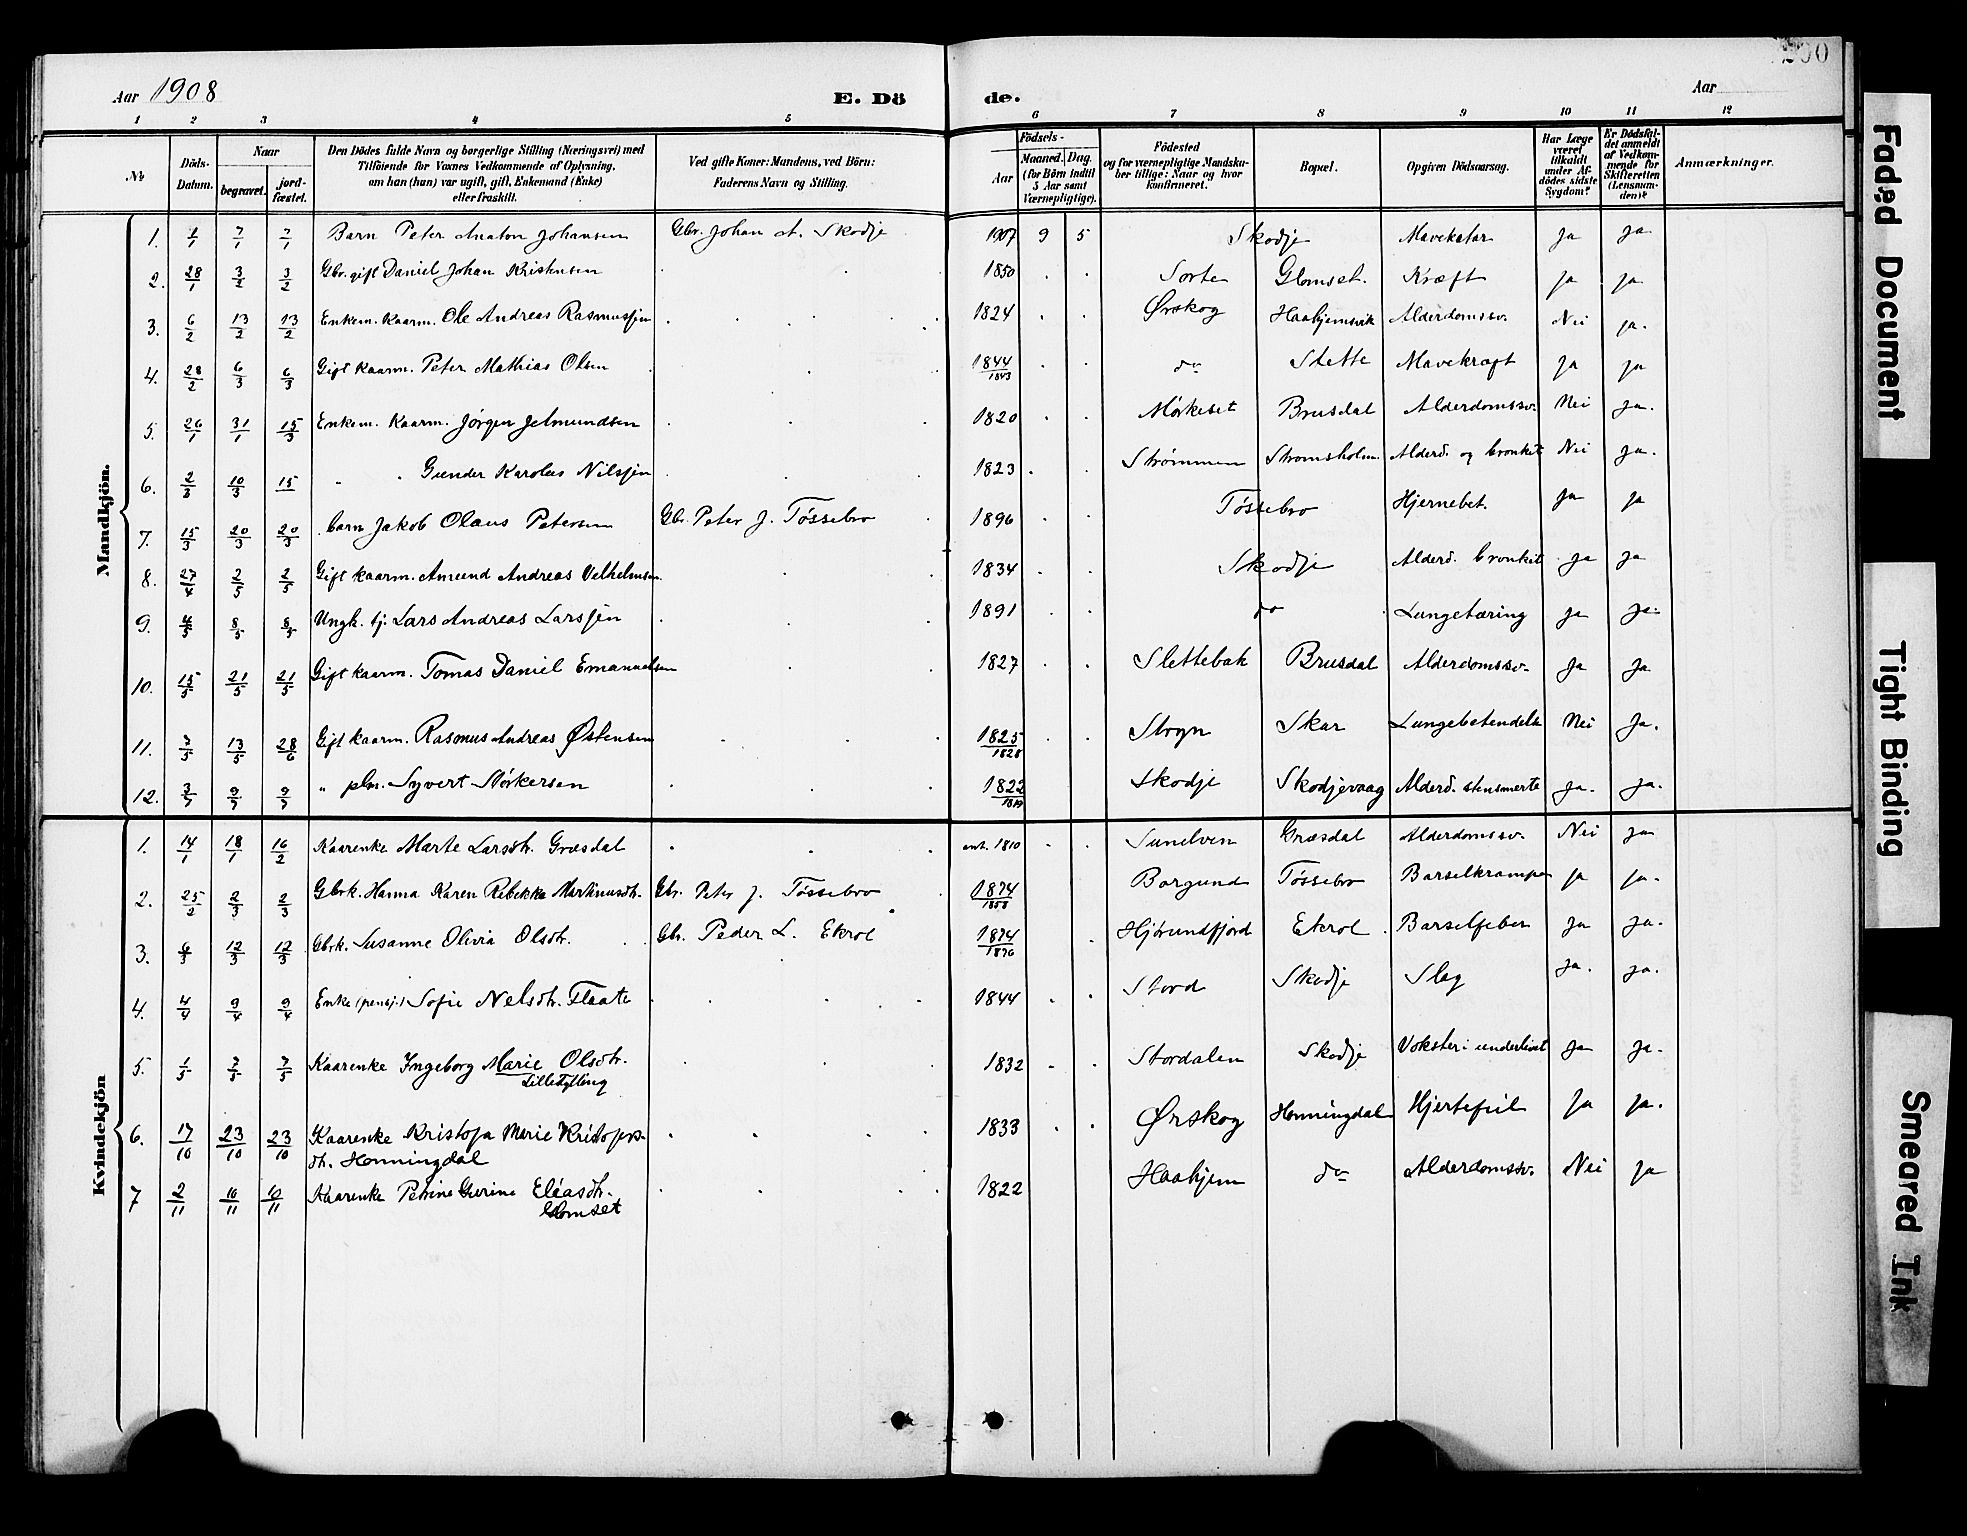 Aar 1908 E. Dö de. Aar 200
1 2 3 4 5 6 7 8 9 10 11 12
№ Döds-Datum. Naar begravet. jord-fæstet. Den Dödes fulde Navn og borgerlige Stilling (Næringsvei) med Tilföiende for Voxnes Vedkommende af Oplysning, om han (hun) var ugift, gift, Enkemand (Enke) eller fraskilt. Ved gifte Koner: Mandens, ved Börn: Faderens Navn og Stilling. Födsels- Aar Maaned. Dag. (for Börn indtil 5 Aar samt Værnepligtige). Födested og for værnepligtige Mandskaber tillige: Naar og hvor konfirmeret. Bopæl. Opgiven Dödsaarsag. Har Læge været tilkaldt under Afdödes sidste Sygdom? Er Dödsfaldet anmeldt af Vedkommende for Skifteretten (Lensmanden)? Anmærkninger.
Mandkjön.
1. 1/1 7/1 7/1 Barn Peter Anaton Johansen Gbr. Johan A. Skodje 1907 9 5 Skodje Mavekatar Ja Ja
2. 28/1 3/2 3/2 Gbr. gift Daniel Johan Kristensen 1850 Sorte Glomset. Kræft Ja Ja
3. 6/2 13/2 13/2 Enkem. Kaarm. Ole Andreas Rasmussen 1824 Ørskog Haahjemsvik Alderdomssv. Nei Ja.
4. 28/2 6/3 6/3 Gift Kaarm. Peter Mathias Olsen 1844/1843 do Stette Mavekræft Ja Ja
5. 26/1 31/1 15/3 Enkem. Kaarm. Jørgen Jelmundsen 1820 Mørkeset Brusdal Alderdomssv. Nei Ja.
6. 2/3 10/3 15 " " Gunder Karolus Nilssen 1823 Strømmen Stromsholm. Alderd. og bronkit Nei Ja.
7. 15/3 20/3 20/3 barn Jakob Olaus Petersen Gbr. Peter J. Tøssebro 1896 Tøssebro Hjernebet. Ja Ja
8. 27/4 2/5 2/5 Gift Kaarm. Amund Andreas Velhelmsen 1834 Skodje Alderd. bronkit Ja Ja
9. 4/5 8/5 8/5 Ungk. tj. Lars Andreas Larssen 1891 do Lungetæring Ja Ja.
10. 15/5 21/5 21/5 Gift Kaarm. Tomas Daniel Emanuelsen 1827 Slettebak Brusdal Alderdomssv. Ja Ja
11. 7/5 13/5 28/6 Gift Kaarm. Rasmus Andreas Østensen 1825/1828 Stryn Skar Lungebetendelse Nei Ja.
12. 3/7 9/7 9/7 " plm. Syvert Størkersen 1822/1819 Skodje Skodjevaag Alderd. stensmerte Ja. Ja.
Kvindekjön
1. 14/1 18/1 16/2 Kaarenke Marte Larsdtr. Græsdal ant. 1810 Sunelven Græsdal Alderdomssv. Nei Ja
2. 25/2 2/3 2/3 Gbrk. Hanna Karen Rebekka Martinusdtr. Gbr. Peter J. Tøssebro 1874/1858 Borgund Tøssebro Barselkrampe Ja Ja.
3. 6/3 12/3 12/3 Gbrk. Susanne Olivia Olsdtr. Gbr. Peder L. Ekrol 1874/1876 Hjørundfjord Ekrol Barselfeber Ja Ja.
4. 4/4 9/4 9/4 Enke (pensj.) Sofie Nelsdtr. Flaate 1844 Stord Skodje Slag Ja. Ja.
5. 1/5 7/5 7/5 Kaarenke Ingeborg Marie Olsdtr. 1832 Stordalen Skodje Vokster i underlivet Ja Ja.
Lilletylling
6. 17/10 23/10 23/10 Kaarenke Kristofa Marie Kristofers- 1833 Ørskog Honningdal Hjertefeil Ja Ja.
dtr. Honningdal
7 2/11 10/11 10/11 Kaarenke Petrine Gurine Eleasdtr. 1822 Haahjem do Alderdomssv. Nei Ja
Glomset
Faded Document
Tight Binding
Smeared Ink